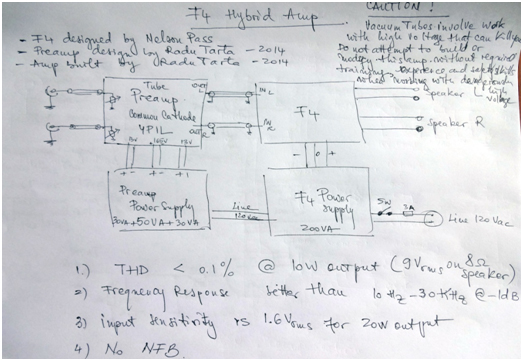 F4 Hybrid Amp
CAUTION!
- F4 designed by Nelson Pass
- Preamp design by Radu Tarta - 2014
- Amp built by Radu Tarta - 2014
Vacuum Tubes involve work
with high voltage that can kill you
Do not attempt to built or
modify this amp without required
training, experience and
when working with
high
voltage
Tube
Preamp
Common Cathode
4P1L
OUT L
OUT R
IN L
IN R
F4
speaker L
speaker R
+ -
+ -
+ -
- 0 +
Preamp
Power Supply
30VA+50VA+30VA
Line
120Vac
F4 Power
supply
200VA
SW
3A
Line 120Vac
1.) THD < 0.1% @ 10W output (9Vrms on 8Ω
speaker)
2) Frequency Response better than 10Hz-30KHz @-1dB
3) input sensitivity is 1.6Vrms for 20W output
4) No NFB.